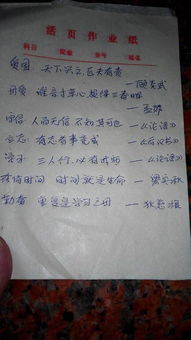 活页作业纸
科目 班级 学号 姓名
爱国: 天下兴亡,匹夫有责
——顾炎武
谁言寸草心,报得三春晖
——孟郊
人而无信 不知其可也 ——《论语》
有志者事竟成 ——《后汉书》
三人行,必有我师 ——《论语》
珍惜时间 时间就是生命 ——梁实秋
勤奋